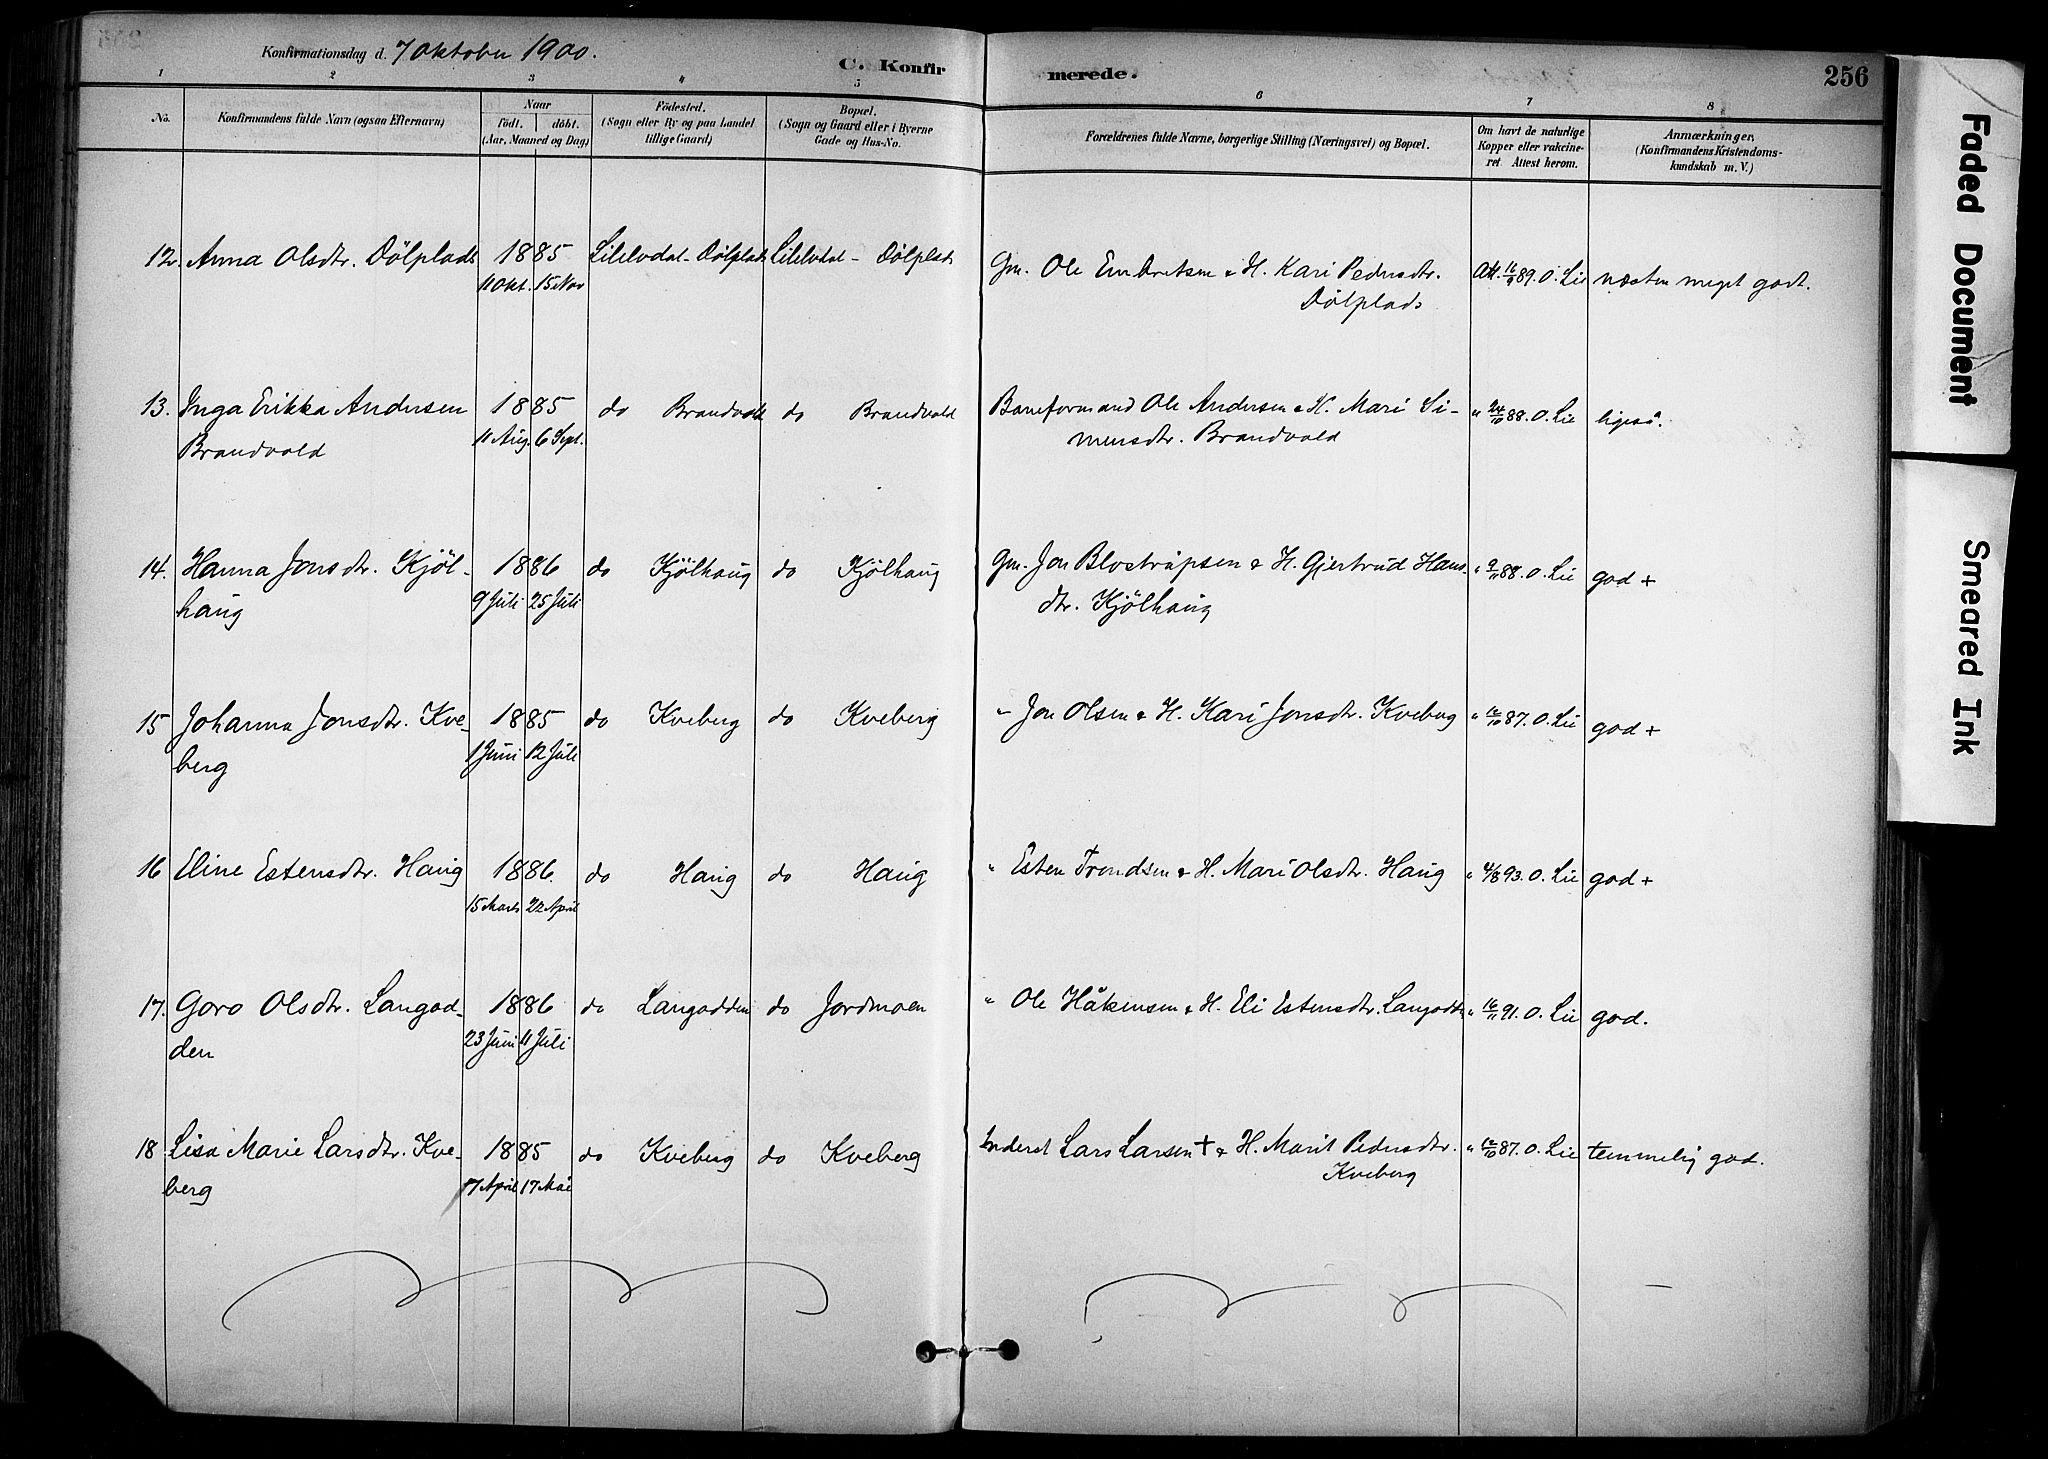 Konfirmationsdag d. 7 Oktober 1900.
C. Konfirmerede.
256
1 2 3 " 5 6 7 8
No.
Konfirmandens fulde Navn (ogsaa Efternavn)
Naar
födt. döbt.
(Aar, Maaned og Dag)
Födested.
(Sogn eller By og paa Landet
tillige Gaard)
Bopæl.
(Sogn og Gaard eller i Byerne
Gade og Hus-No.
Forældrenes fulde Navne, borgerlige Stilling (Næringsvei) og Bopæl.
Om havt de naturlige
Kopper eller vakcine-
ret Attest herom.
Anmærkninger,
(Konfirmandens Kristendoms-
kundskab m. V.)
12. Anna Olsdtr. Dölplads 1885 Lilelvdal - Dölplads Lilelvdal - Dölplads Gm. Ole Embretsen & H. Kari Pedersdtr. Att. 89. O. Lie næsten meget godt.
11 Okt. 15 Nov Dölplads
13. Inga Erikka Andersen 1885 do Brandvold do Brandvold Baneformand Ole Andersen & H. Mari Si- " 88. O. Lie ligeså.
Brandvold 11 Aug. 6 Sept. mensdtr. Brandvold
14. Hanna Jonsdtr. Kjöl- 1886 do Kjölhaug do Kjölhaug Gm. Jon & H. Gjertrud Hans- " 9/11 88. O. Lie god +
haug 9 Juli 25 Juli dtr. Kjölhaug
15 Johanna Jonsdtr. Kve- 1885 do Kveberg do Kveberg " Jon Olsen & H. Kari Jonsdtr. Kveberg " 12/10 87. O. Lie god +
berg 1 Juni 12 Juli
16 Eline Estensdtr. Haug 1886. do Haug do Haug " Esten Trondsen & H. Mari Olsdtr. Haug " 4/8 93. O. Lie god +
15 Marts 22 April
17. Goro Olsdtr. Langod- 1886 do Langodden do Jordmoen " Ole Håkensen & H. Eli Estensdtr. Langodden " 16/11 91. O. Lie god.
den 23 Juni 11 Juli
18. Lisa Marie Larsdtr. Kve- 1885 do Kveberg do Kveberg Inderst Lars Larsen + & H. Marit Pedersdtr. " 12/10 87. O. Lie temmelig god.
berg 17 April 17 Mai Kveberg
Faded Document
Smeared Ink